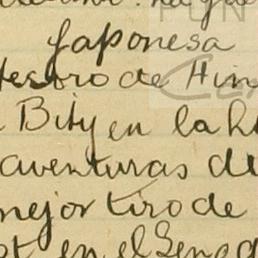 Japonesa
tesoro de Hin
Bity en la h
aventuras de
mejor tiro de
st en el Sena